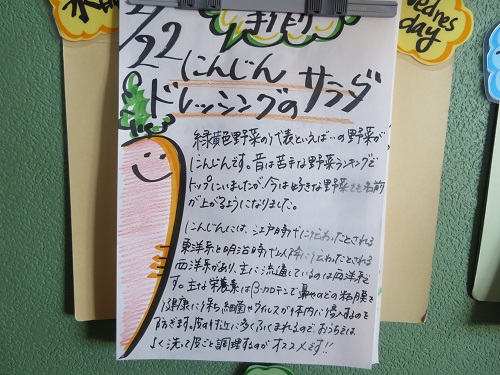 2/22
にんじん
ドレッシングのサラダ
緑黄色野菜の代表といえば…の野菜が
にんじんです。昔は苦手な野菜ランキングで
トップにいましたが、今は好きな野菜でも名前
が上がるようになりました。
にんじんには、江戸時代に伝わったとされる
東洋系と明治時代以降に伝わったとされる
西洋系があり、主に流通しているのは西洋系で
す。主な栄養素はβ-カロテンで鼻やのどの粘膜を
健康に保ち、細菌やウイルスが体内に侵入するのを
ふせぎます。皮の付近に多くふくまれるので、おうちでは
よく洗って皮ごと調理するのがオススメです!!
Wednes
day